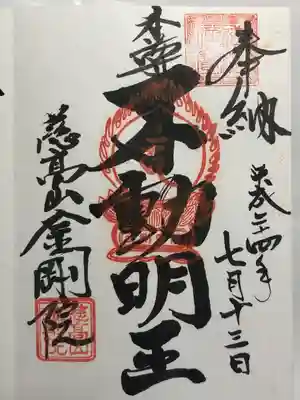 奉納
平成二十四年
七月十三日
本尊
不動明王
慈高山金剛院